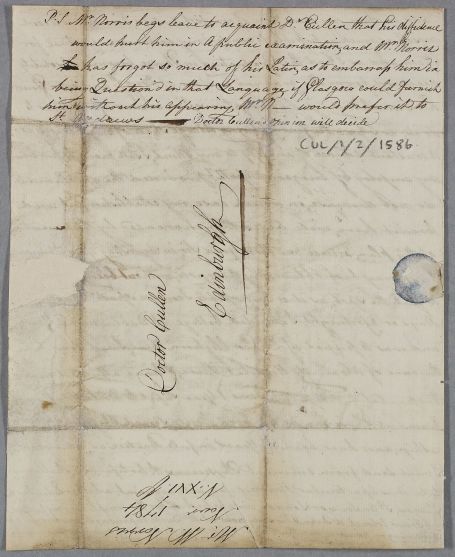 P.S. Mr. Norris begs leave to acquaint Dr. Cullen that his diffidence
would hurt him in a public examination, and Mr. Norris
has forgot so much of his Latin, as to embarrass him in
being Question'd in that Language, if Glasgow could furnish
him without his appearing, Mr. N would prefer it to
St. Andrews — Doctor Cullen's opinion will decide
CUL/1/2/1586
Doctor Cullen
Edinburgh
Mr. Norris
1784
N. XVI